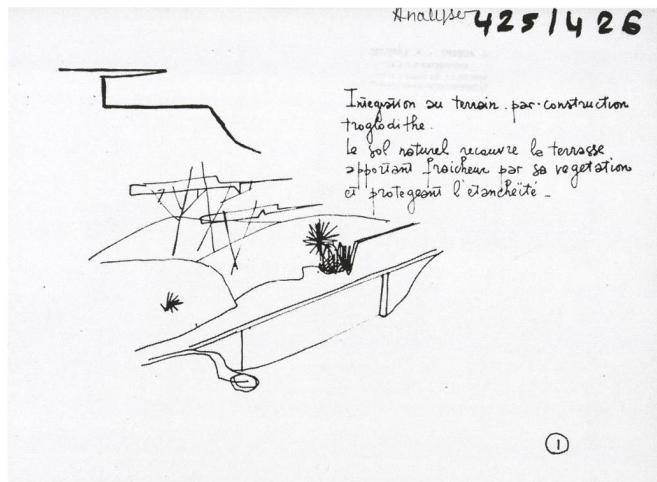 Analyser 425/426
Integration au terrain par construction
troglodithe.
Le sol naturel recouvre la terrasse
apportant fraicheur par sa vegetation
et protegeant l'étancheïté -
1